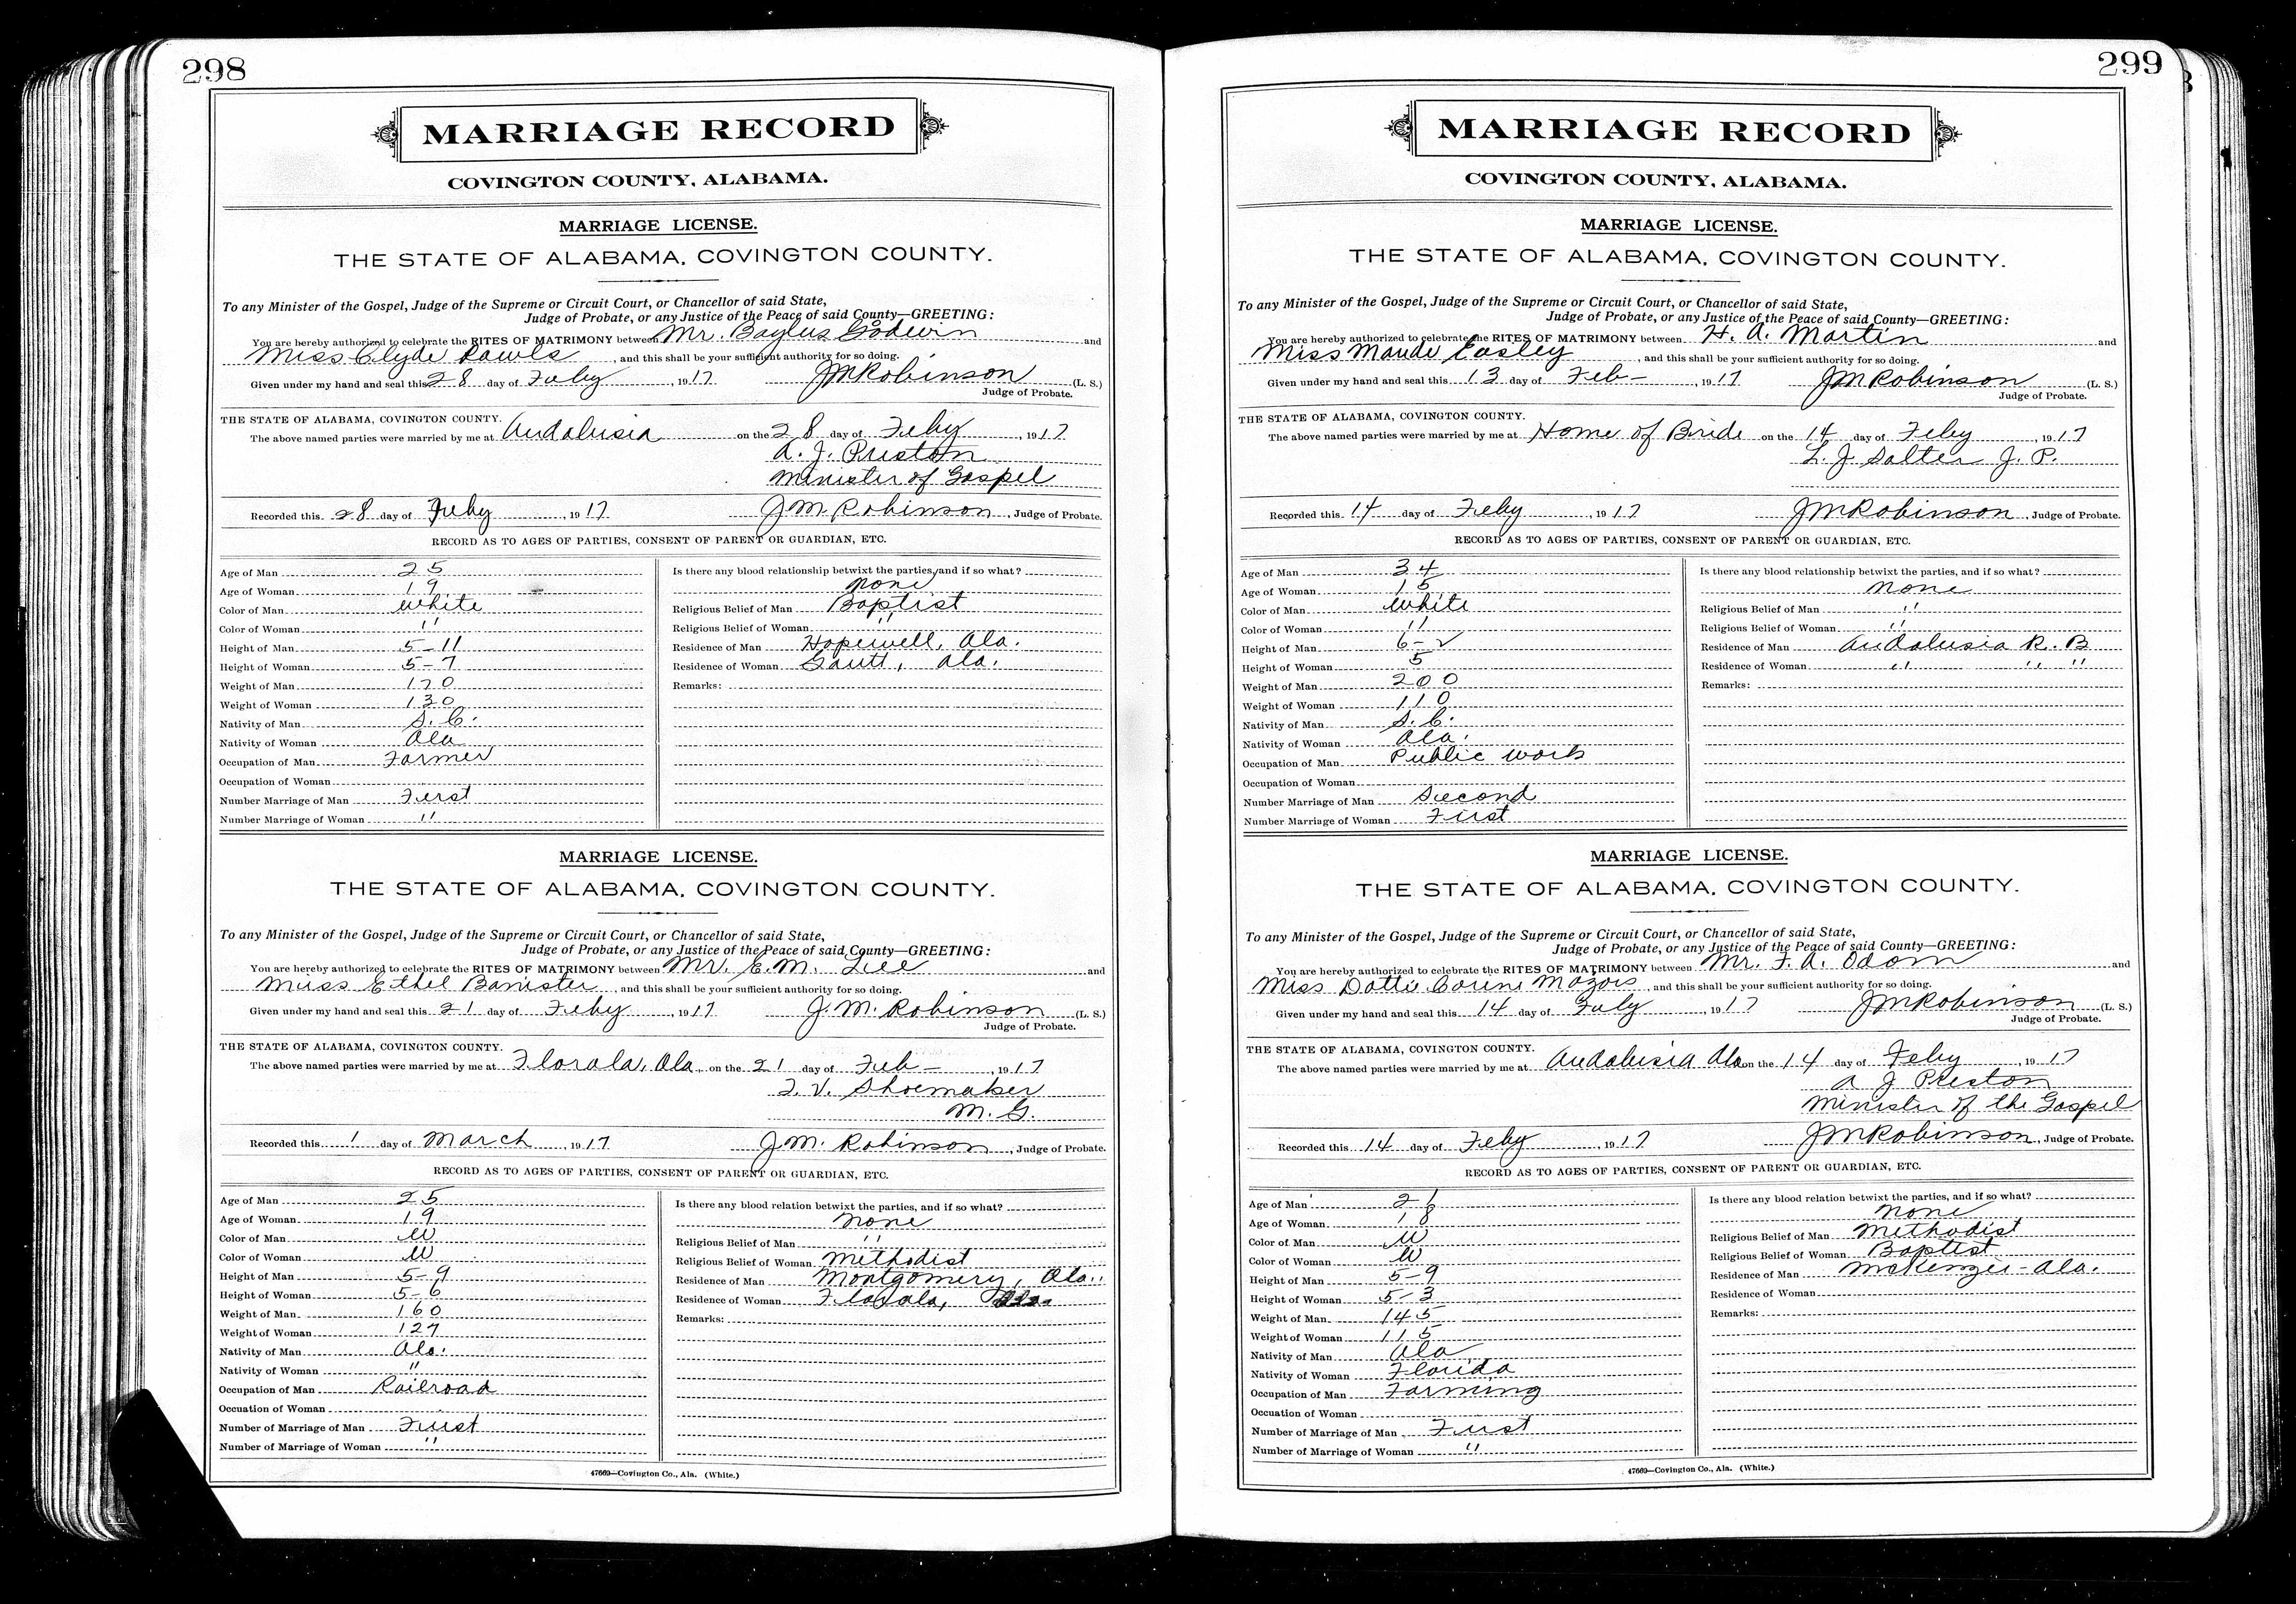 298
MARRIAGE RECORD
COVINGTON COUNTY, ALABAMA.
MARRIAGE LICENSE.
THE STATE OF ALABAMA, COVINGTON COUNTY.
To any Minister of the Gospel, Judge of the Supreme or Circuit Court, or Chancellor of said State,
Judge of Probate, or any Justice of the Peace of said County—GREETING:
You are hereby authorized to celebrate the RITES OF MATRIMONY between Mr. Baylus Godwin and
Miss Clyde Rawls, and this shall be your sufficient authority for so doing.
Given under my hand and seal this 28 day of Feby, 1917 JM Robinson (L. S.)
Judge of Probate.
THE STATE OF ALABAMA, COVINGTON COUNTY.
The above named parties were married by me at Andalusia on the 28 day of Feby, 1917
A. J. Preston
Minister of Gospel
Recorded this 28 day of Feby, 1917 J M Robinson, Judge of Probate.
RECORD AS TO AGES OF PARTIES, CONSENT OF PARENT OR GUARDIAN, ETC.
Age of Man 25
Age of Woman 19
Color of Man white
Color of Woman "
Height of Man 5-11
Height of Woman 5-7
Weight of Man 170
Weight of Woman 130
Nativity of Man S. C.
Nativity of Woman Ala
Occupation of Man Farmer
Occupation of Woman
Number Marriage of Man First
Number Marriage of Woman "
Is there any blood relationship betwixt the parties, and if so what?
None
Religious Belief of Man Baptist
Religious Belief of Woman "
Residence of Man Hopewell, Ala.
Residence of Woman Gantt, Ala.
Remarks:
MARRIAGE LICENSE.
THE STATE OF ALABAMA, COVINGTON COUNTY.
To any Minister of the Gospel, Judge of the Supreme or Circuit Court, or Chancellor of said State,
Judge of Probate, or any Justice of the Peace of said County—GREETING:
You are hereby authorized to celebrate the RITES OF MATRIMONY between Mr. E. M. Lee and
Miss Ethel Banister, and this shall be your sufficient authority for so doing.
Given under my hand and seal this 21 day of Feby, 1917 J. M. Robinson (L. S.)
Judge of Probate.
THE STATE OF ALABAMA, COVINGTON COUNTY.
The above named parties were married by me at Florala, Ala. on the 21 day of Feb-, 1917
Shoemaker
M. G.
Recorded this 1 day of March, 1917 J. M. Robinson, Judge of Probate.
RECORD AS TO AGES OF PARTIES, CONSENT OF PARENT OR GUARDIAN, ETC.
Age of Man 25
Age of Woman 19
Color of Man W
Color of Woman W
Height of Man 5-9
Height of Woman 5-6
Weight of Man 160
Weight of Woman 127
Nativity of Man Ala.
Nativity of Woman "
Occupation of Man Railroad
Occuation of Woman
Number of Marriage of Man First
Number of Marriage of Woman "
Is there any blood relation betwixt the parties, and if so what?
None
Religious Belief of Man "
Religious Belief of Woman Methodist
Residence of Man Montgomery, Ala.
Residence of Woman Florala, Ala.
Remarks:
47669—Covington Co., Ala. (White.)
299
MARRIAGE RECORD
COVINGTON COUNTY, ALABAMA.
MARRIAGE LICENSE.
THE STATE OF ALABAMA, COVINGTON COUNTY.
To any Minister of the Gospel, Judge of the Supreme or Circuit Court, or Chancellor of said State,
Judge of Probate, or any Justice of the Peace of said County—GREETING:
You are hereby authorized to celebrate the RITES OF MATRIMONY between H. A. Martin and
Miss Maude Easley, and this shall be your sufficient authority for so doing.
Given under my hand and seal this 13 day of Feb-, 1917 JM Robinson (L. S.)
Judge of Probate.
THE STATE OF ALABAMA, COVINGTON COUNTY.
The above named parties were married by me at Home of Bride on the 14 day of Feby, 1917
L. J. Salter J. P.
Recorded this 14 day of Feby, 1917 JM Robinson, Judge of Probate.
RECORD AS TO AGES OF PARTIES, CONSENT OF PARENT OR GUARDIAN, ETC.
Age of Man 34
Age of Woman 15
Color of Man White
Color of Woman "
Height of Man 6-2
Height of Woman 5
Weight of Man 200
Weight of Woman 110
Nativity of Man S. C.
Nativity of Woman Ala.
Occupation of Man Public work
Occupation of Woman
Number Marriage of Man Second
Number Marriage of Woman First
Is there any blood relationship betwixt the parties, and if so what?
None
Religious Belief of Man "
Religious Belief of Woman "
Residence of Man Andalusia R. B
Residence of Woman " " "
Remarks:
MARRIAGE LICENSE.
THE STATE OF ALABAMA, COVINGTON COUNTY.
To any Minister of the Gospel, Judge of the Supreme or Circuit Court, or Chancellor of said State,
Judge of Probate, or any Justice of the Peace of said County—GREETING:
You are hereby authorized to celebrate the RITES OF MATRIMONY between Mr. F. A. Odom and
Miss Dottie Corine, and this shall be your sufficient authority for so doing.
Given under my hand and seal this 14 day of Feby, 1917 JM Robinson (L. S.)
Judge of Probate.
THE STATE OF ALABAMA, COVINGTON COUNTY.
The above named parties were married by me at Andalusia Ala on the 14 day of Feby, 1917
A J Preston
Minister of the Gospel
Recorded this 14 day of Feby, 1917 JM Robinson, Judge of Probate.
RECORD AS TO AGES OF PARTIES, CONSENT OF PARENT OR GUARDIAN, ETC.
Age of Man 21
Age of Woman 18
Color of Man W
Color of Woman W
Height of Man 5-9
Height of Woman 5-3
Weight of Man 145
Weight of Woman 115
Nativity of Man Ala
Nativity of Woman Florida
Occupation of Man Farming
Occuation of Woman
Number of Marriage of Man First
Number of Marriage of Woman "
Is there any blood relation betwixt the parties, and if so what?
None
Religious Belief of Man Methodist
Religious Belief of Woman Baptist
Residence of Man McKenzie-Ala.
Residence of Woman
Remarks:
47669—Covington Co., Ala. (White.)